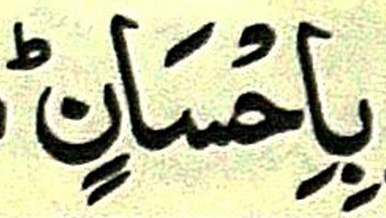 بِاِحْسَانٍ ؕ